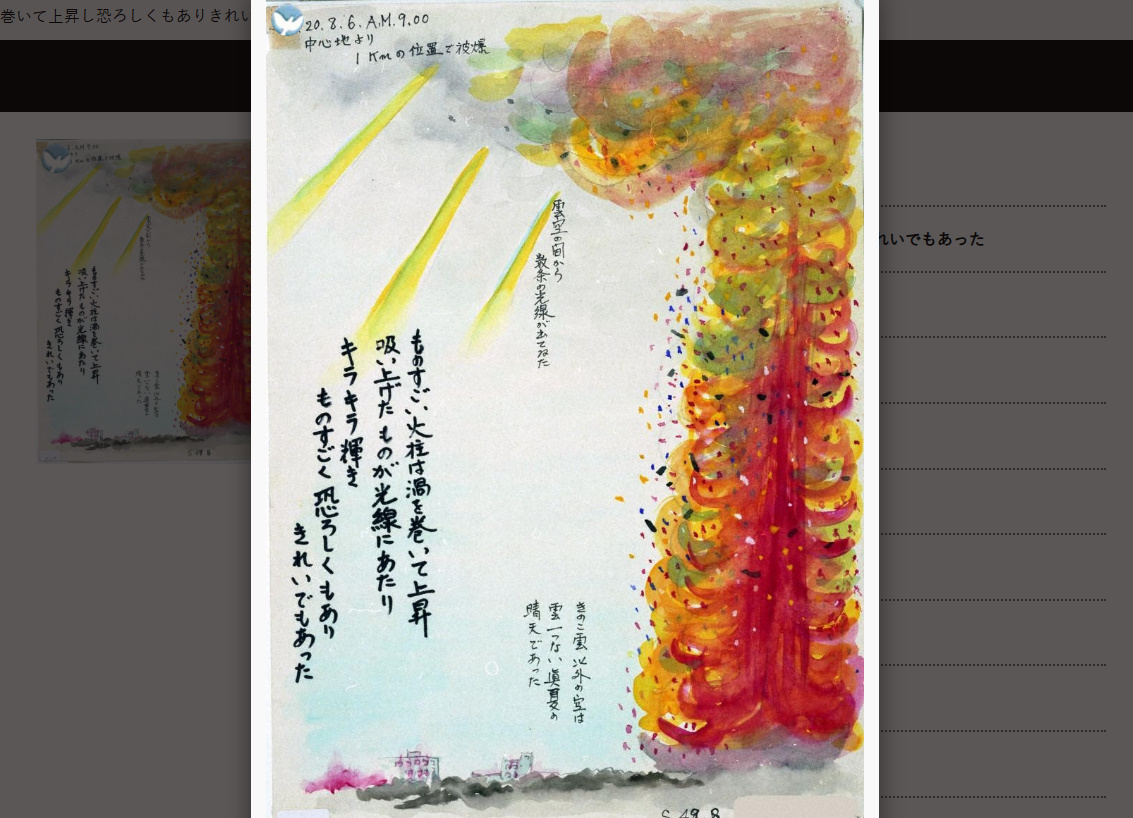 巻いて上昇し恐ろしくもありきれい
れいでもあった
20.8.6.A.M.9.00
中心地より
1 Kmの位置で被爆
雲空の間から
数条の光線が出てゐた
ものすごい火柱は渦を巻いて上昇
吸い上げたものが光線にあたり
キラキラ輝き
ものすごく恐ろしくもあり
きれいでもあった
きのこ雲以外の空は
雲一つない眞夏の
晴天であった
S 49.8